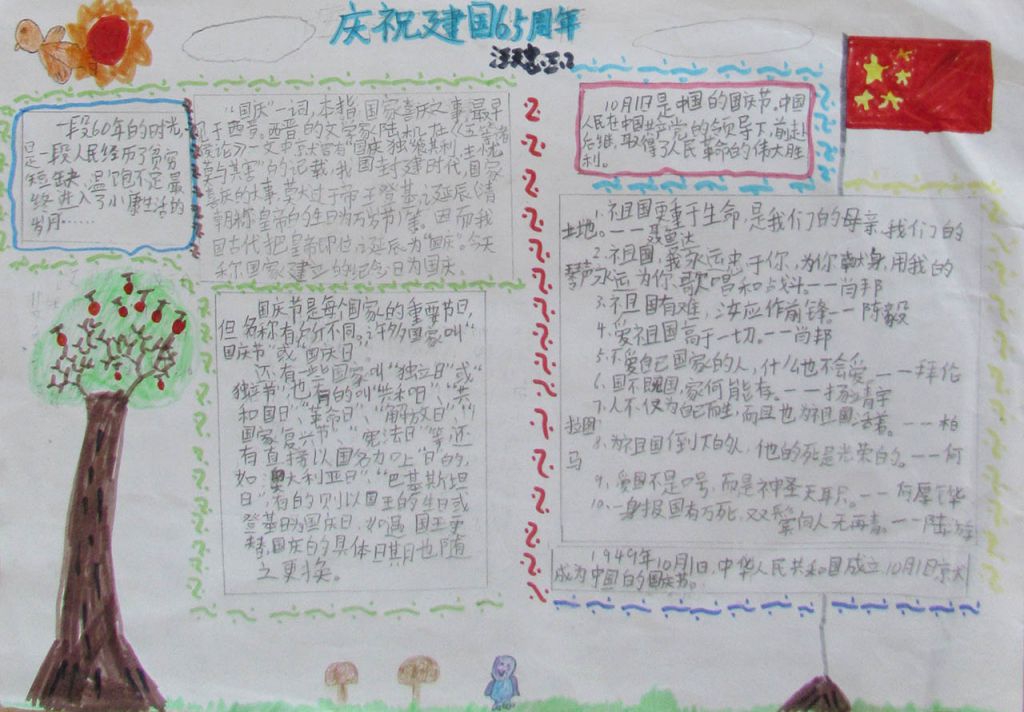 庆祝建国65周年
一段60年的时光,
是一段人民经历了贫穷
短缺、温饱不定最
终进入了小康生活的
岁月……
"国庆"一词,本指国家喜庆之事,最早
见于西晋。西晋的文学家陆机在《五等诸
侯论》一文中就曾有"国庆独飨其利,主忧
莫与其害"的记载,我国封建时代,国家
喜庆的大事,莫大过于帝王登基、诞辰(清
朝称皇帝的生日为万岁节)等。因而我
国古代把皇帝即位、诞辰为"国庆"。今天
称国家建立的纪念日为国庆。
国庆节是每个国家的重要节日,
但名称有所不同。许多国家叫"
国庆节"或"国庆日"。
还有一些国家叫"独立日"或"
独立节",也有的叫"共和日"、"共
和国日"、"革命日"、"解放日"、"
国家复兴节"、"宪法日"等,还
有直接以国名加上"日"的,
如"澳大利亚日"、"巴基斯坦
日",有的则以国王的生日或
登基日为国庆日,如遇国王更
替,国庆的具体日期也随
之更换。
10月1日是中国的国庆节,中国
人民在中国共产党的领导下,前赴
后继,取得了人民革命的伟大胜
利。
1.祖国更重于生命,是我们的母亲,我们的
土地。——聂鲁达
2.祖国,我永远忠于你,为你献身,用我的
琴声永远为你歌唱和战斗——肖邦
3.祖国有难,汝应作前锋——陈毅
4.爱祖国高于一切。——肖邦
5.不爱自己国家的人,什么也不会爱——拜伦
6.国不国,家何能存。——杨靖宇
7.人不仅为自己而生,而且也为祖国活着。——柏
拉图
8.为祖国倒下的人,他的死是光荣的。——何
马
9.爱国不是口号,而是神圣天职。——何厚铧
10.一身报国有万死,双鬓向人无再青。——陆游
1949年10月1日,中华人民共和国成立,10月1日
成为中国的国庆节。